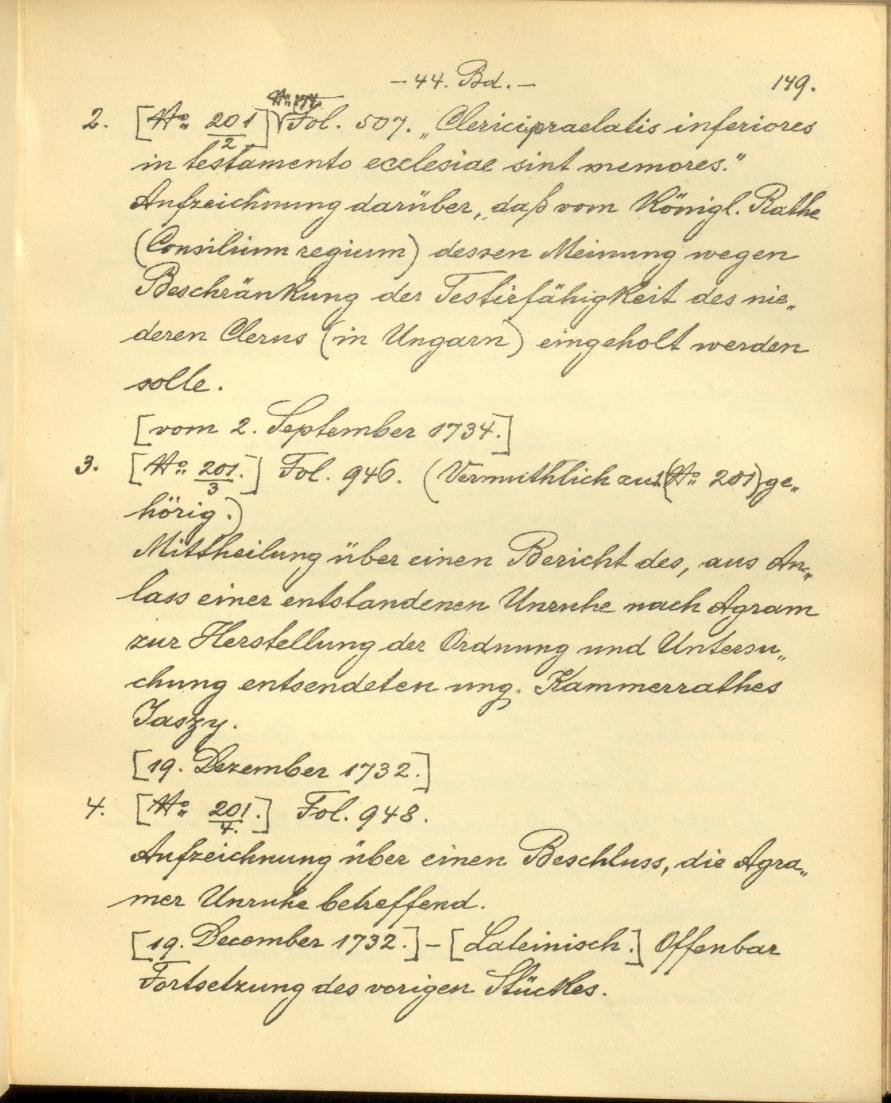 – 44. Bd. –   149.
2. [№ 201/2] √ Fol. 507. „Clerici praelatis inferiores
in testamento ecclesiae sint memores.“
Aufzeichnung darüber, daß vom Königl. Rathe
(Consilium regium) dessen Meinung wegen
Beschränkung der Testirfähigkeit des nie„
deren Clerus (in Ungarn) eingeholt werden
solle.
[vom 2. September 1734.]
3. [№ 201./3.] Fol. 946. (Vermuthlich zu (№ 201) ge„
hörig.)
Mittheilung über einen Bericht des, aus An„
lass einer entstandenen Unruhe nach Agram
zur Herstellung der Ordnung und Untersu„
chung entsendeten ung. Kammerrathes
Jaszy.
[19. Dezember 1732.]
4. [№ 201./4.] Fol. 948.
Aufzeichnung über einen Beschluss, die Agra„
mer Unruhe betreffend.
[19. December 1732.] – [Lateinisch.] Offenbar
Fortsetzung des vorigen Stückes.